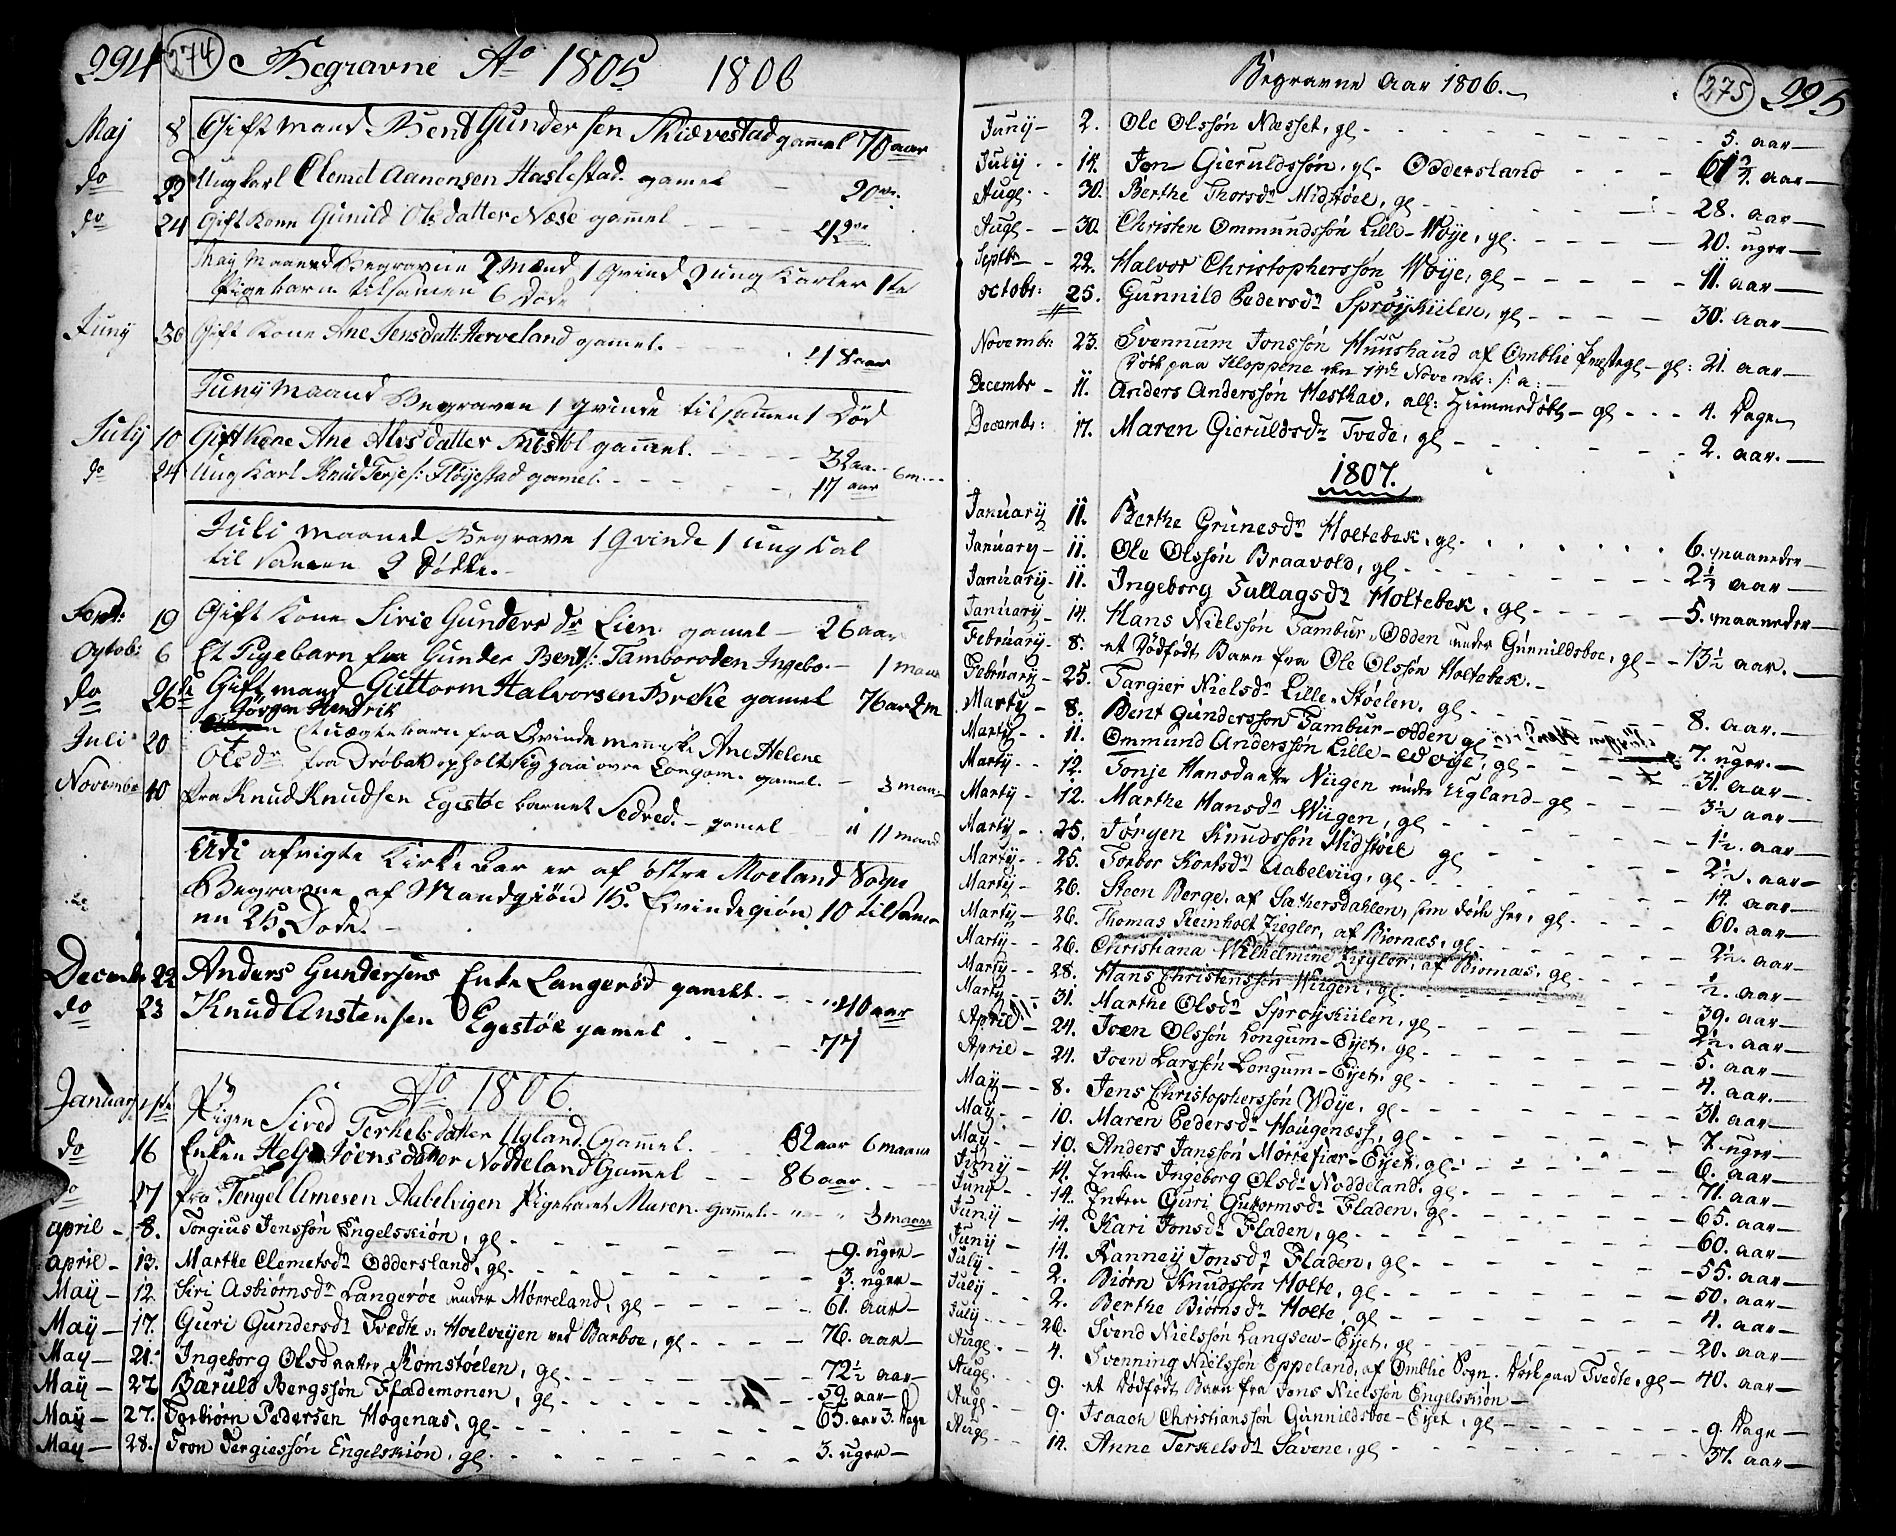 294 274 Begravne Aº 1805 1806
Maj 8 Gift mand Bend Gundersen Skiævestad gammel 70 aar
do 22 Ung karl Clemet Aanensen Haslestad gamel - 20 aar
do 24 Gift Kone Gunild Olsdatter Næse gammel - - - - 42 aar
May Maaned Begravne 2 Mænd 1 Qvinde 2 Ung Karler 1
Pigebarn tilsamen 6 Døde
Juny 30 Gift Kone Ane Jensdatt: Herveland gamel. - - - 48 aar
Juny Maaned Begraven 1 qvinde tilsammen 1 Død
July 10 Gift Kone Ane Alvsdatter gammel. - - - - 32 aar
do 24 Ung Karl Knud Terjes: Fløyestad gamel. - - - - 17 aar 6 m
Juli maaned Begrave 1 Qvinde 1 ung Kal
til samen 2 Dødte.
Sept: 19 Gift Kone Sirie Gunders dr Lien gamel - 26 aar
Octob: 6 Et Pigebarn fra Gunder Bents: Tamboroden Ingebo - 1 maan
do 26 Gift mand Guttorm Halvorsen Breke gamel 76 ar 2 m
Jørgen Hendrik
Juli 20 Et uægte barn fra Qvinde menniske Ane Helene
Olsdr fra Drøbak opholt sig paa øvre Longom. gamel. - 3 maan
Novembr 10 fra Knud Knudsen Egestøe barnet Sedved. - gamel - - 11 maand
Udi afvigte Kirke Aar er af østre Moeland Sogn
Begravne af Mandgiøn 15. Qvindegiøn 10 tilsam
en 25 Døde.
Decembr 22 Anders Gundersens Enke Langerød gamelt. - - 40 aar
do 23 Knud Anstensen Egestøe gamel. - - 77
Aº 1806.
January 1ste Pigen Sired Terkelsdatter Ugland Gammel. 62 aar 6 maane
do 16 Enken Helje Joensdatter Noddeland Gammel - - 86 aar - -
do 17 fra Tengel Amesen Aabelvigen Pigebarnet Maren. Gammel - - 3 maane
april - 8. Torgius Jenssøn Engelskiøn, gl - - - - - 9. uger -
april - 13. Marthe Clemetsdr Oddersland, gl - - - - - 3. uger -
May - 12. Siri Asbiørnsdr Langerøe under Mørreland, gl - - - - - 61. aar -
May - 17. Guri Gundersdr Tvedte v. Hoelveijen ved Barboe, gl - - - - 76. aar -
May - 21. Ingeborg Olsdaatter Komstøelen, gl - - - - - 72½ aar -
May - 27. Bæruld Bergssøn Flademonen, gl - - - - - 59. aar -
May - 27. Torbiørn Pedersen Hogenæs, gl - - - - - 63. aar 3. Dage
May - 28. Tron Tergiessøn Engelskiøn, gl - - - - - 3. uger -
Begravne Aar 1806. 275 295
Juny - 2. Ole Olssøn Næsset, gl - - - - - 5. aar
July - 14. Jon Gieruldssøn, gl - Oddersland - - - 61 aar
Augl - 30. Berthe Thorsdr Midstøel, gl - - - - 28. aar
Augl - 30. Christen Ommundssøn Lille-Wøye, gl. - - - - 20. uger
Septbr - 22. Halvor Christophersøn Wøije, gl - - - - 11. aar
octobr: 25. Gunnild Pedersdr Sprøykiilen, gl - - - - 30. aar
Novembr: 23. Svennum Jonssøn Huushaud af Omblie Præstegl - gl: 21. aar
Død paa Kloppene den 14de Novembr: s: a: -
Decembr - 11. Anders Anderssøn Hesthav, all: Himmerdøbt - gl - - - 4. Dage
Decembr: 17. Maren Gieruldsdr Tvede, gl - - - - 2. aar.
1807.
January 11. Berthe Grunesdr Holtebek, gl. - - - - 6. maaneder
January - 11. Ole Olssøn Braavold, gl - - - - 2½ aar
January - 11. Ingeborg Tallagsdr Holtebek, gl - - - - 5. maaneder
January - 14. Hans Nielssøn Tambur-Odden under Gunnildsboe, gl - - 13½ aar.
February - 8. et Dødfødt Barn fra Ole Olssøn Holtebek.
February - 25. Targier Nielsdr Lille-Støelen, gl - - - - 8. aar.
Marty - 8. Bent Gunderssøn Tambur-odden gl - - 7. uger.
Marty - 11. Ommund Anderssøn Lille-Woye, gl - - - - 31. aar
Marty - 12. Tonje Hansdaatter Niigen under Ugland - gl - - - 3½ aar
Marty - 12. Marthe Hansdr Wiigen, gl - - - - 1½. aar
Marty - 25. Jørgen Knudssøn Midstøel gl - - - - 2½. aar
Marty - 25. Torbor Kortsdr Aabelviig, gl - - - - 14. aar
Marty - 26. Steen Berge, af Sathersdahlen, som døde her, gl - - - 60. aar
Marty - 26. Thomas Reinholt Ziegler, af Biornæs, gl - - - - 2½. aar
Marty - 26. Christiana Wilhelmine Ziegler, af Biornæs, gl - - - - ½. aar
Marty - 28. Hans Christenssøn Wiigen, gl - - - - 39. aar
Marty - 31. Marthe Olsdr Sprøyskiilen, gl - - - - 2½. aar
April - 24. Joen Olssøn Longum-Eyet, gl - - - - 5. aar
April - 24. Joen Larssøn Longum-Eyet, gl - - - - 4. aar.
May - 8. Jens Christophersøn Wøye, gl - - - - 31. aar
May - 10. Maren Pedersdr Haugenæss, gl - - - - 7. uger
May - 10. Anders Janssøn Mørrefiær-Eyet, gl - - - - 6. aar
Juny - 14. Enken Ingeborg Olsdr Noddeland, gl - - - - 71. aar
Juny - 14. Enken Guri Guttormsdr Fladen, gl - - - - 65. aar
Juny - 14. Kari Jonsdr Fladen, gl - - - - 60. aar
Juny - 14. Ranney Jonsdr Fladen, gl - - - - 55. aar
July - 2. Biørn Knudssøn Holte, gl - - - - 50. aar
July - 2. Berthe Biørnsdr Holte, gl - - - - 4. aar
July - 26. Svend Nielssøn Langsew-Eyet, gl - - - - 20. aar
Augl. - 4. Svenning Nielssøn Eppeland, af Omblie Sogn. Død paa Tvedte, gl - 40. aar
Augl. - 9. et Dødfødt Barn fra Jens Nielssøn Engelskiøn -
Augl - 9. Isaach Christianssøn Gunnildsboe-Eyet, gl - - - - 9. Dage
Augl - 14. Anne Terkelsdr Savene, gl - - - - 37. aar